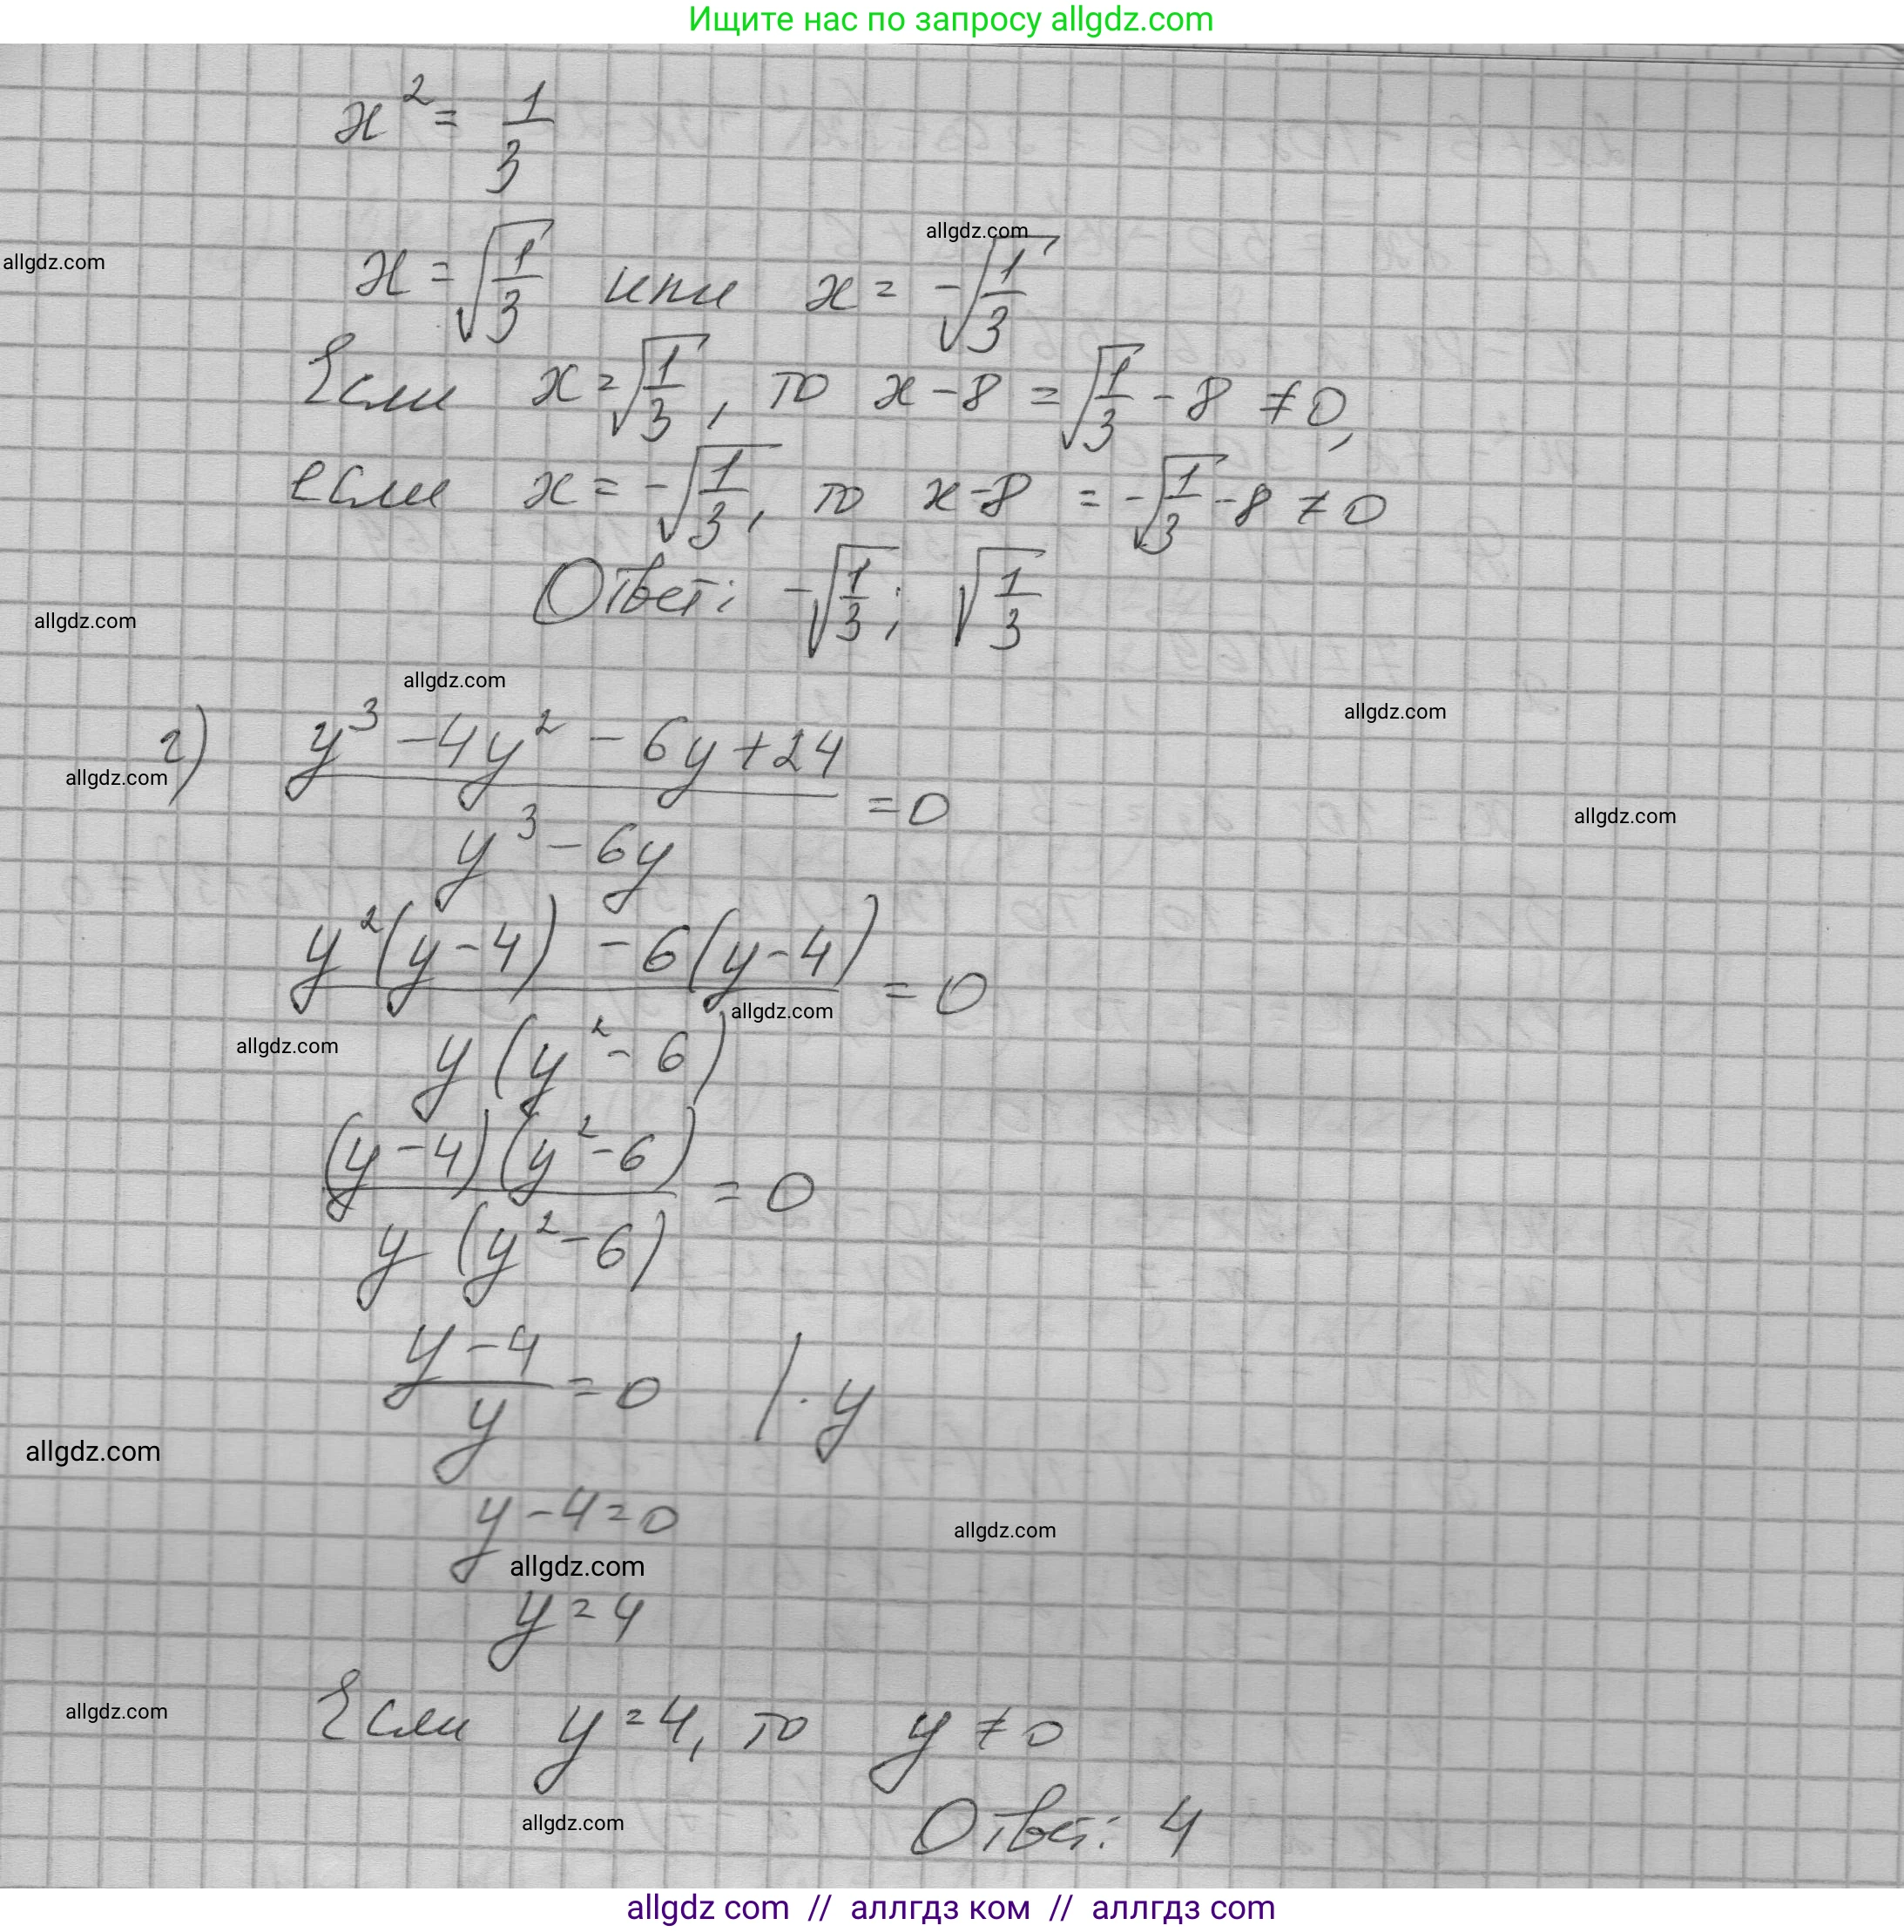 Ищите нас по запросу allgdz.com
x² = 1/3
allgdz.com
allgdz.com
x = √(1/3) или x = -√(1/3)
Если x = √(1/3), то x - 8 = √(1/3) - 8 ≠ 0,
если x = -√(1/3), то x - 8 = -√(1/3) - 8 ≠ 0
Ответ: -√(1/3); √(1/3)
allgdz.com
allgdz.com
allgdz.com
г) (y³ - 4y² - 6y + 24)/(y³ - 6y) = 0
allgdz.com
allgdz.com
(y²(y - 4) - 6(y - 4))/(y(y² - 6)) = 0
allgdz.com
allgdz.com
((y - 4)(y² - 6))/(y(y² - 6)) = 0
(y - 4)/y = 0 | · y
allgdz.com
y - 4 = 0
allgdz.com
allgdz.com
y = 4
allgdz.com
Если y = 4, то y ≠ 0
allgdz.com
Ответ: 4
allgdz com // аллгдз ком // аллгдз com